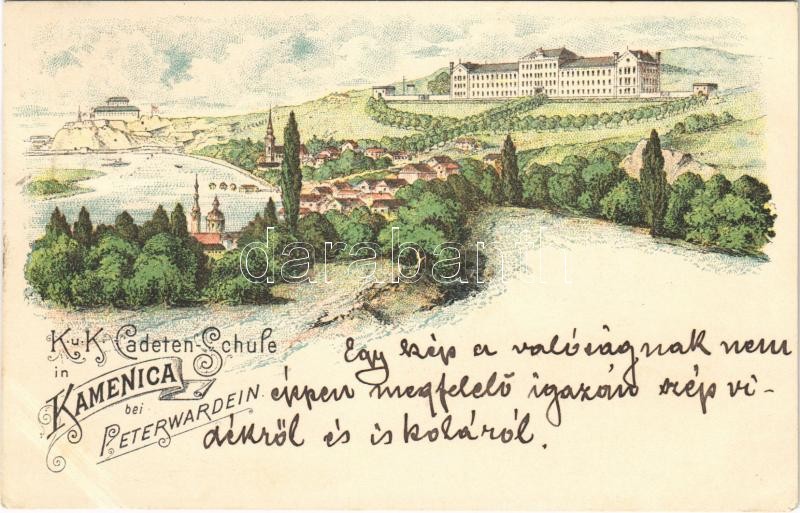 darabanth
K. u. K. Cadeten-Schule
in
KAMENICA
bei
PETERWARDEIN.
Egy kép a valóságnak nem
éppen megfelelő igazán szép vi-
dékről és iskoláról.